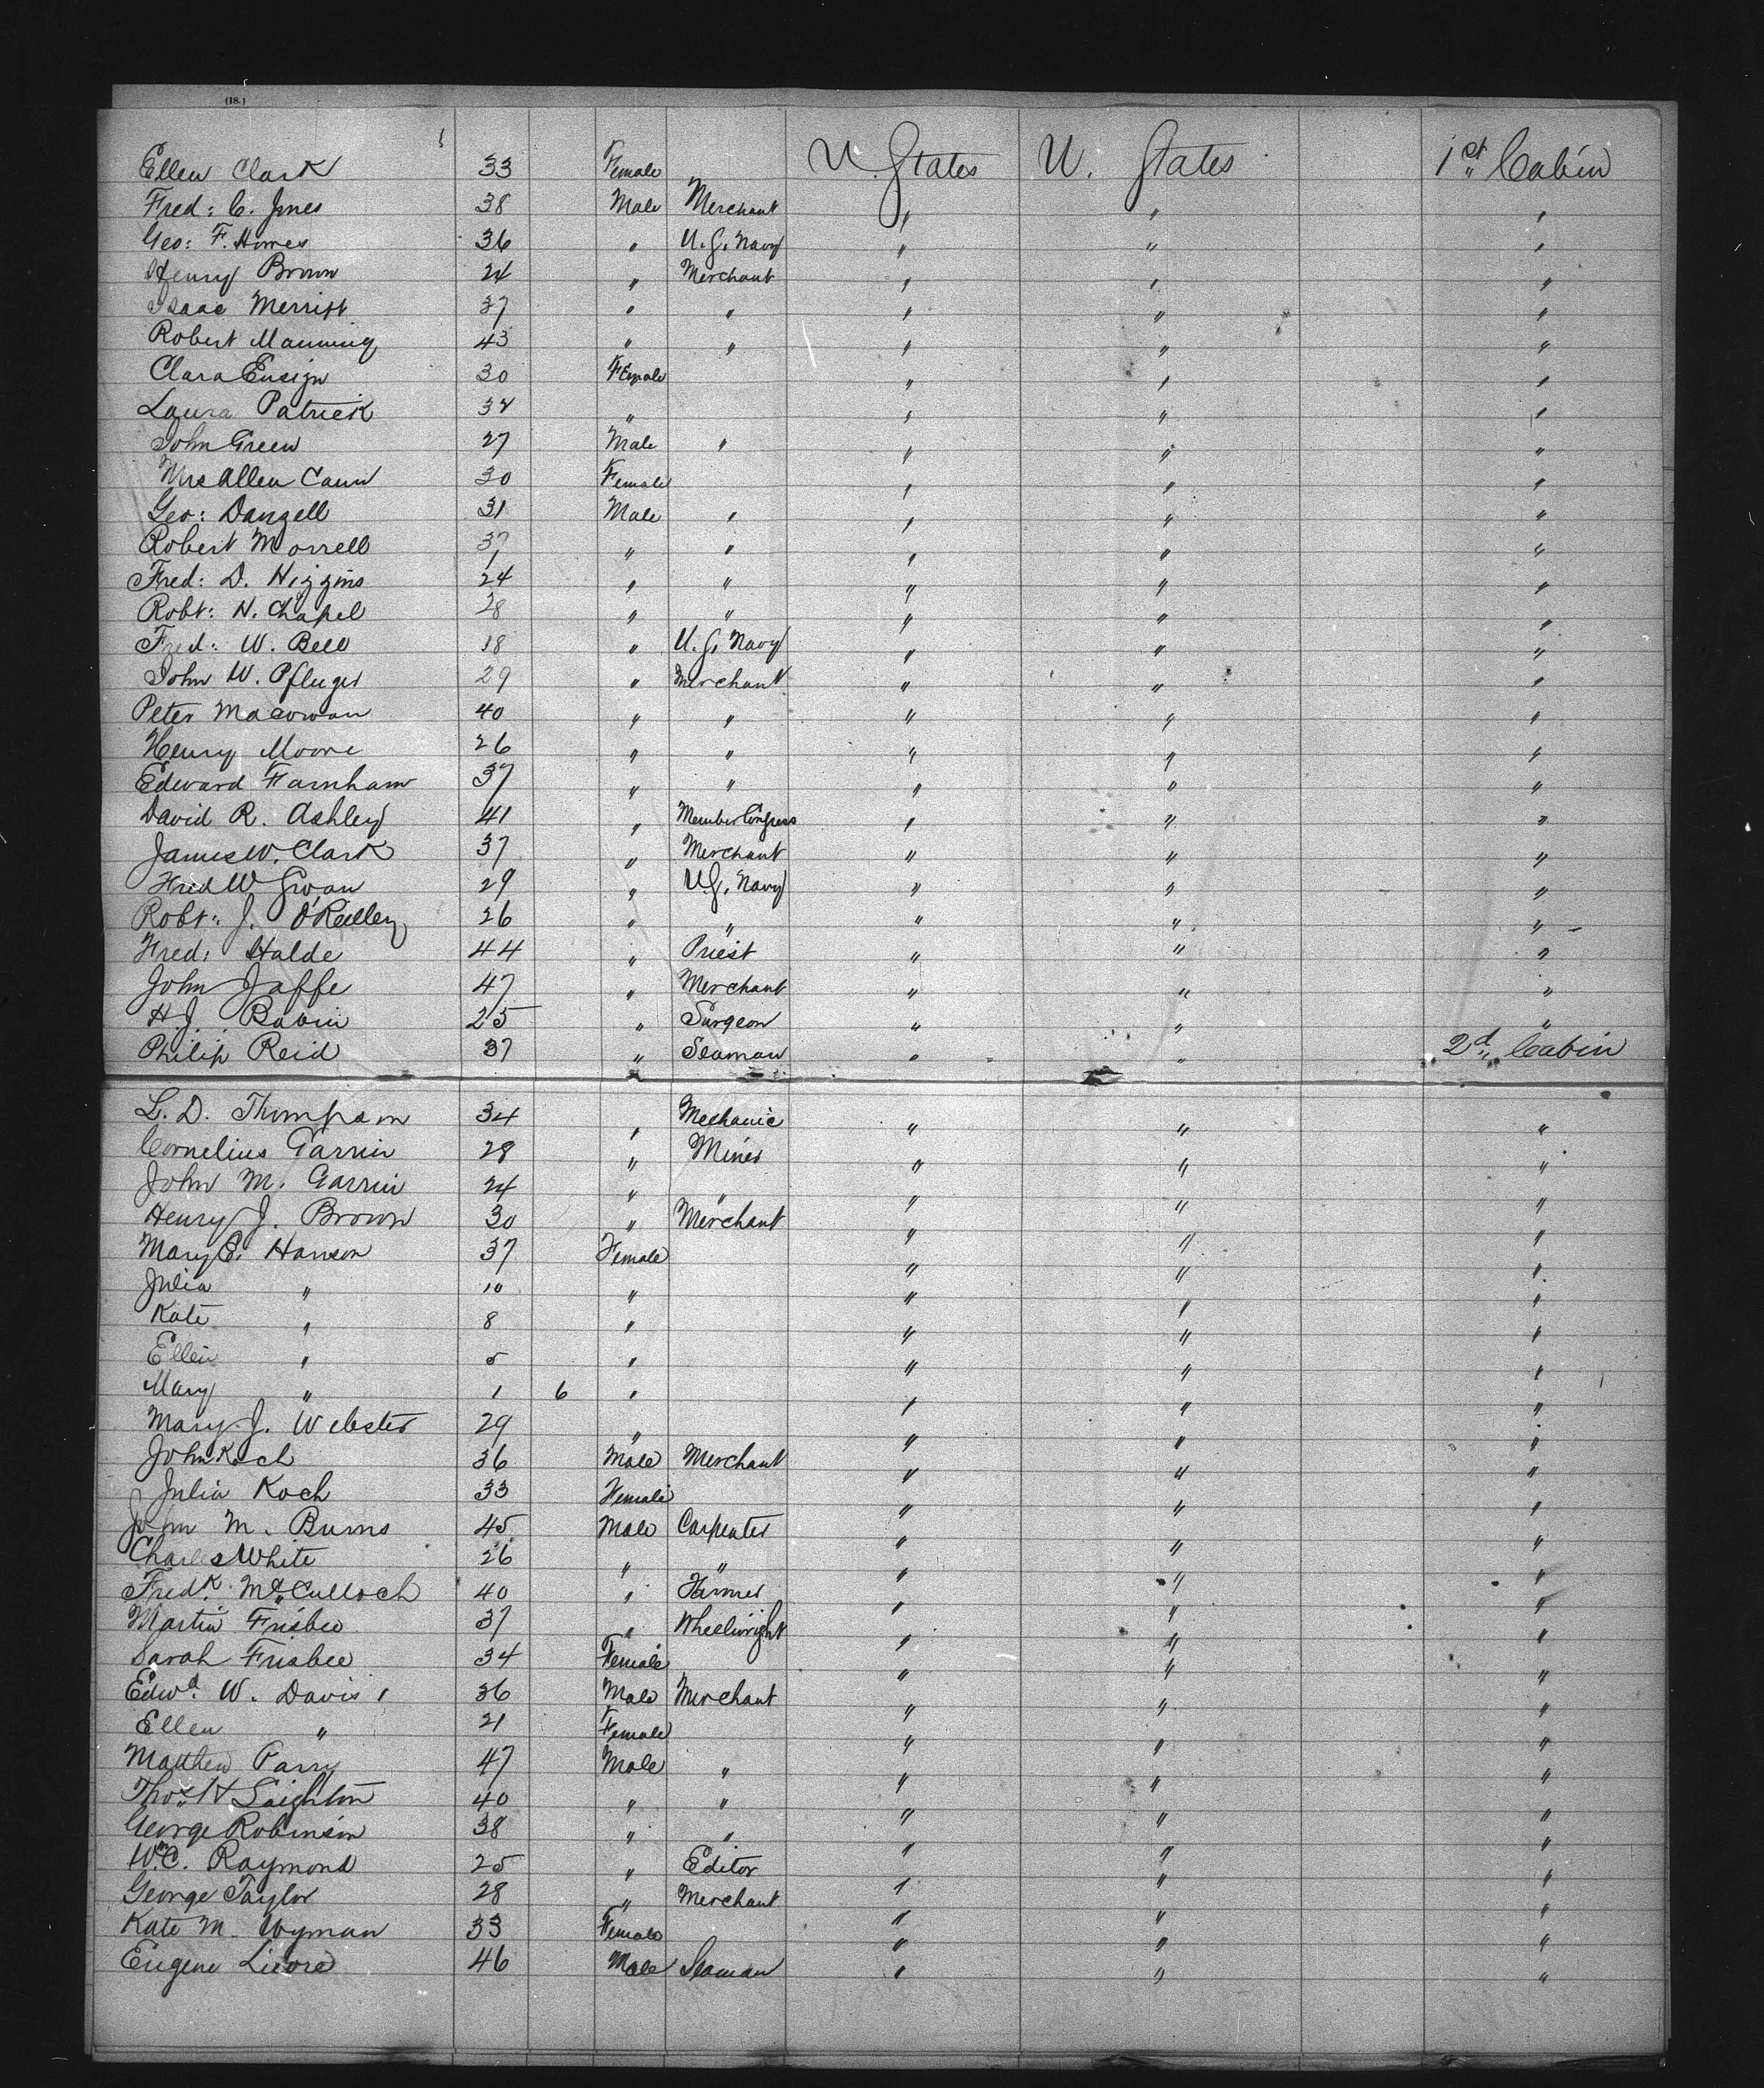 (18.)
Ellen Clark 33 Female U. States U. States 1st Cabin
Fred: C. Jones 38 Male Merchant " " "
Geo: F. Homes 36 " U.S. Navy " " "
Henry Brown 24 " Merchant " " "
Isaac Merritt 37 " " " " "
Robert Manning 43 " " " " "
Clara Ensign 30 Female " " "
Laura Patrick " " " "
John Green 27 Male " " " "
Mrs Allen Cann 30 Female " " "
Geo: Danzell 31 Male " " " "
Robert Morrell 37 " " " " "
Fred: D. Higgins 24 " " " " "
Robt: N. Chapel 28 " " " " "
Fred: W. Bell 18 " U.S. Navy " " "
John W. Pfluger 29 " Merchant " " "
Peter Macowan 40 " " " " "
Henry Moore 26 " " " " "
Edward Farnham 37 " " " " "
David R. Ashley 41 " Member Congress " " "
James W. Clark 37 " Merchant " " "
Fred W 29 " U.S. Navy " " "
Robt: J. O'Reilley 26 " " " " "
Fred: Halde 44 " Priest " " "
John Jaffe 47 " Merchant " " "
H.J. Babin 25 " Surgeon " " "
Philip Reid 37 " Seaman " " 2d Cabin
L. D. Thompson 34 " Mechanic " " "
Cornelius Garrin 28 " Miner " " "
John M. Garrin 24 " " " " "
Henry J. Brown 30 " Merchant " " "
Mary E. Hanson 37 Female " " "
Julia " 10 " " " "
Kate " 8 " " " "
Ellen " 5 " " " "
Mary " 1 6 " " " "
Mary J. Webster 29 " " " "
John Koch 36 Male Merchant " " "
Julia Koch 33 Female " " "
John M. Burns 45 Male Carpenter " " "
Charles White 26 " " " " "
Fredk. McCulloch 40 " Farmer " " "
Martin Frisbee 37 " Wheelwright " " "
Sarah Frisbee 34 Female " " "
Edwd. W. Davis 36 Male Merchant " " "
Ellen " 21 Female " " "
Matthew Parry 47 Male " " " "
Thos H Leighton 40 " " " " "
George Robinson 38 " " " " "
Wm C. Raymond 25 " Editor " " "
George Taylor 28 " Merchant " " "
Kate M. Wyman 33 Female " " "
Eugene 46 Male Seaman " " "